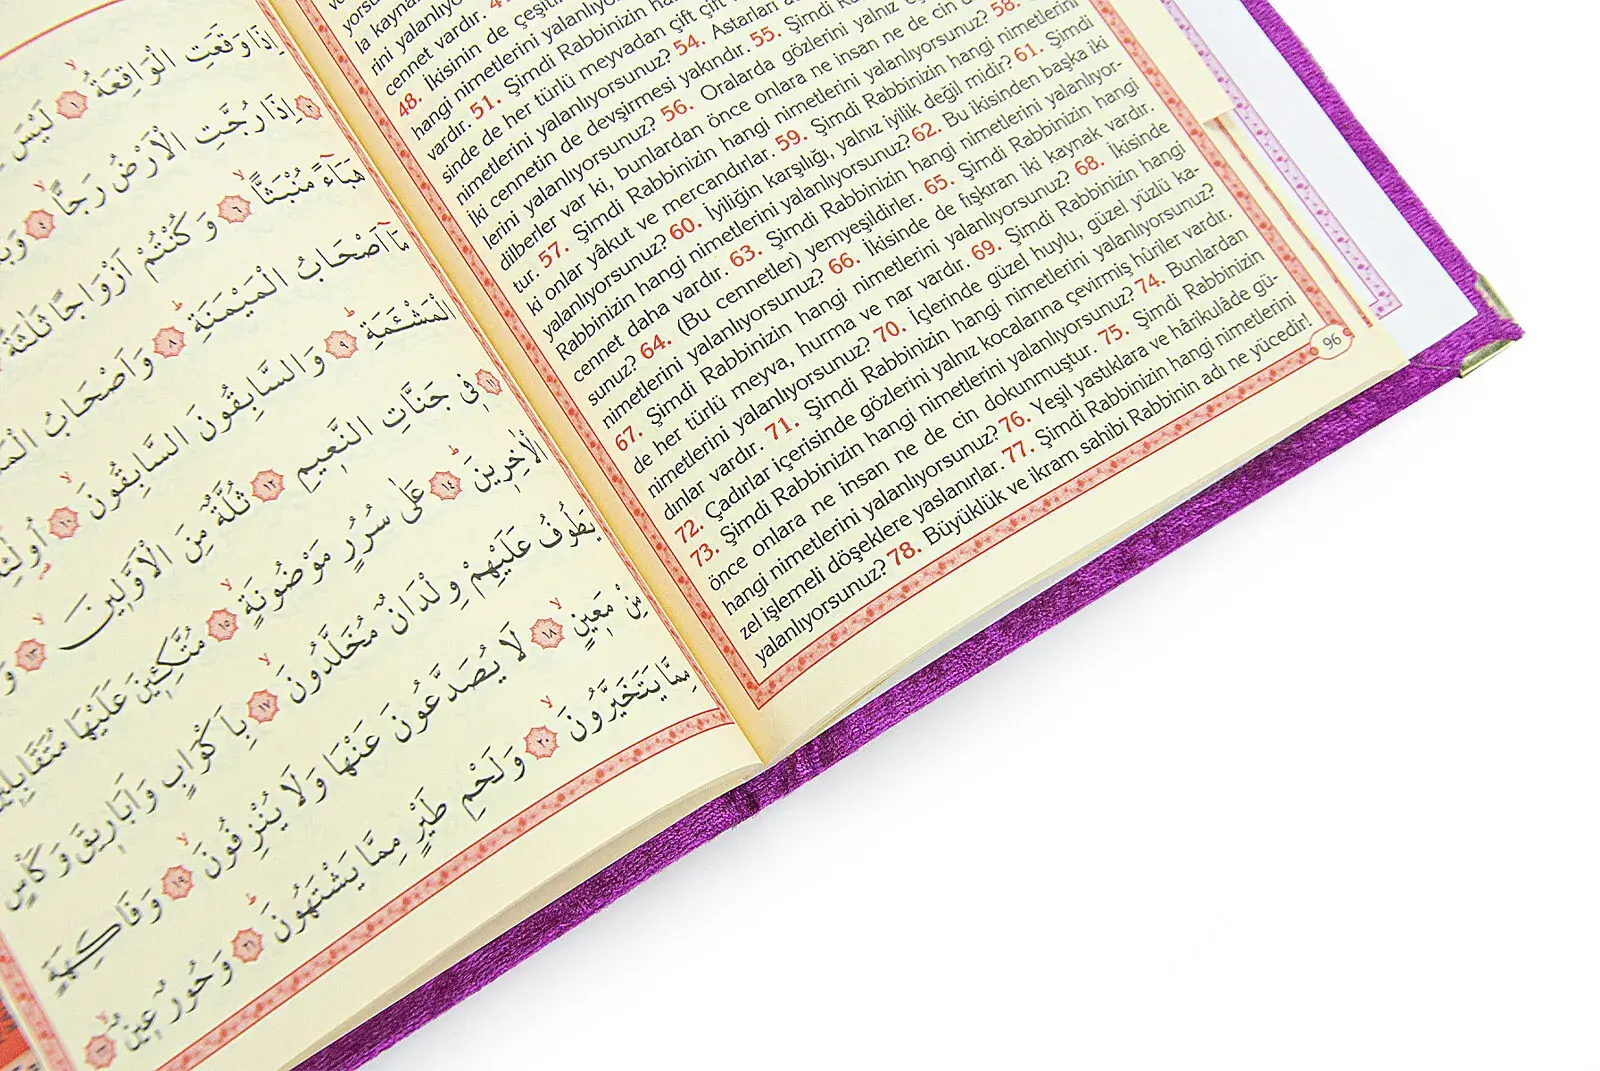 la kaynak
rini yalanlıyorsunuz?
cennet vardır.
48. İkisinin de çeşitli
hangi nimetlerini yalanlıyorsunuz
vardır. 51. Şimdi Rabbinizin hangi
sinde de her türlü meyvadan çift çift
nimetlerini yalanlıyorsunuz? 54. Astarları
İki cennetin de devşirmesi yakındır. 55. Şimdi
lerini yalanlıyorsunuz? 56. Oralarda gözlerini yalnız
dilberler var ki, bunlardan önce onlara ne insan ne de cin
tur. 57. Şimdi Rabbinizin hangi nimetlerini yalanlıyorsunuz? 58.
ki onlar yâkut ve mercandırlar. 59. Şimdi Rabbinizin hangi nimetlerini
yalanlıyorsunuz? 60. İyiliğin karşılığı, yalnız iyilik değil midir? 61. Şimdi
Rabbinizin hangi nimetlerini yalanlıyorsunuz? 62. Bu ikisinden başka iki
cennet daha vardır. 63. Şimdi Rabbinizin hangi nimetlerini yalanlıyor-
sunuz? 64. (Bu cennetler) yemyeşildirler. 65. Şimdi Rabbinizin hangi
nimetlerini yalanlıyorsunuz? 66. İkisinde de fışkıran iki kaynak vardır.
67. Şimdi Rabbinizin hangi nimetlerini yalanlıyorsunuz? 68. İkisinde
de her türlü meyva, hurma ve nar vardır. 69. Şimdi Rabbinizin hangi
nimetlerini yalanlıyorsunuz? 70. İçlerinde güzel huylu, güzel yüzlü ka-
dınlar vardır. 71. Şimdi Rabbinizin hangi nimetlerini yalanlıyorsunuz?
72. Çadırlar içerisinde gözlerini yalnız kocalarına çevirmiş hûriler vardır.
73. Şimdi Rabbinizin hangi nimetlerini yalanlıyorsunuz? 74. Bunlardan
önce onlara ne insan ne de cin dokunmuştur. 75. Şimdi Rabbinizin
hangi nimetlerini yalanlıyorsunuz? 76. Yeşil yastıklara ve hârikulâde gü-
zel işlemeli döşeklere yaslanırlar. 77. Şimdi Rabbinizin hangi nimetlerini
yalanlıyorsunuz? 78. Büyüklük ve ikram sahibi Rabbinin adı ne yücedir!
96
اِذَا وَقَعَتِ الْوَاقِعَةُ ١ لَيْسَ
٣ اِذَا رُجَّتِ الْاَرْضُ رَجًّا ٥
هَبَٓاءً مُنْبَثًّا ٦ وَكُنْتُمْ اَزْوَاجًا ثَلٰثَةً
مَٓا اَصْحَابُ الْمَيْمَنَةِ ٨ وَاَصْحَابُ
الْمَشْـَٔمَةِ ٩ وَالسَّابِقُونَ السَّابِقُونَ ١٠
١١ فِي جَنَّاتِ النَّعِيمِ ١٢ ثُلَّةٌ مِنَ الْاَوَّلِينَ ١٣
الْاٰخِرِينَ ١٤ عَلٰى سُرُرٍ مَوْضُونَةٍ ١٥ مُتَّكِـِٔينَ عَلَيْهَا مُتَقَابِلِينَ
يَطُوفُ عَلَيْهِمْ وِلْدَانٌ مُخَلَّدُونَ ١٧ بِاَكْوَابٍ وَاَبَارِيقَ وَكَأْسٍ
مِنْ مَعِينٍ ١٨ لَا يُصَدَّعُونَ عَنْهَا وَلَا يُنْزِفُونَ ١٩ وَفَاكِهَةٍ
مِمَّا يَتَخَيَّرُونَ ٢٠ وَلَحْمِ طَيْرٍ مِمَّا يَشْتَهُونَ ٢١ وَحُورٌ عِينٌ ٢٢